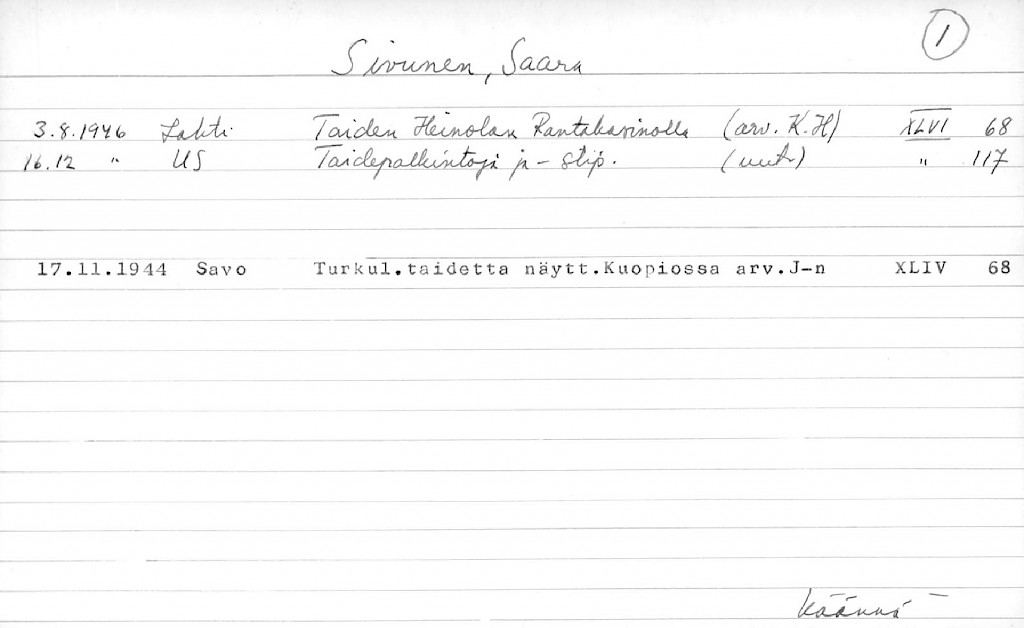 1
Sivunen, Saara
3.8.1946 Lahti Taiden Heinolan Rantakasinolla (arv. K.H) XLVI 68
16.12 " US Taidepalkintoja ja - stip. (uut.) " 117
17.11.1944 Savo Turkul.taidetta näytt.Kuopiossa arv.J-n XLIV 68
Käännä -